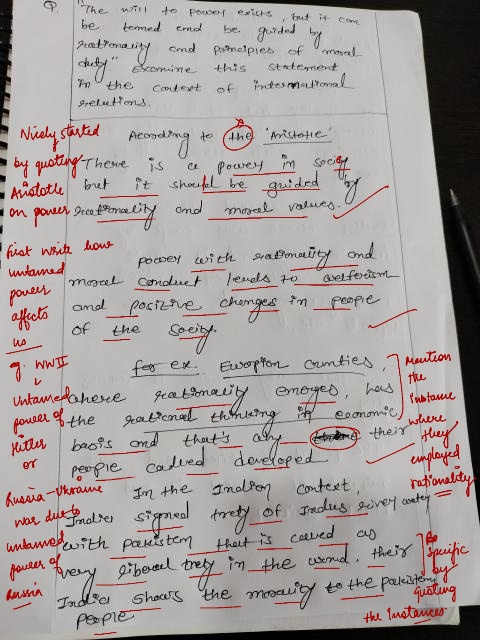 Q. "The will to power exists, but it can
be tamed and be guided by
rationality and principles of moral
duty" Examine this statement
in the context of international
relutions.
Nicely started
by quoting
Aristotle
on power
According to the 'Aristotle'
There is a power in sociey
but it should be guided by
rationality and moral values.
First write how
untamed
power
affects
us
power with rationality and
moral conduct leads to welforism
and positive changes in people
of the socity.
eg. WWII
↓
Untamed
power of
Hitler
or
Russia-Ukraine
war due to
untamed
power of
Russia
for ex. Europion countries,
where rationality emerges, has
the rational thinking in economic
basis and that's any their
people called developed.
Mention
the
instance
where
they
employed
rationality
In the Indian context,
India signed trety of Indus river water
with pakistan that is called as
very liberal trety in the world. their
India shows the morality to the pakistani
people
Be
specific
by
quoting
the instances